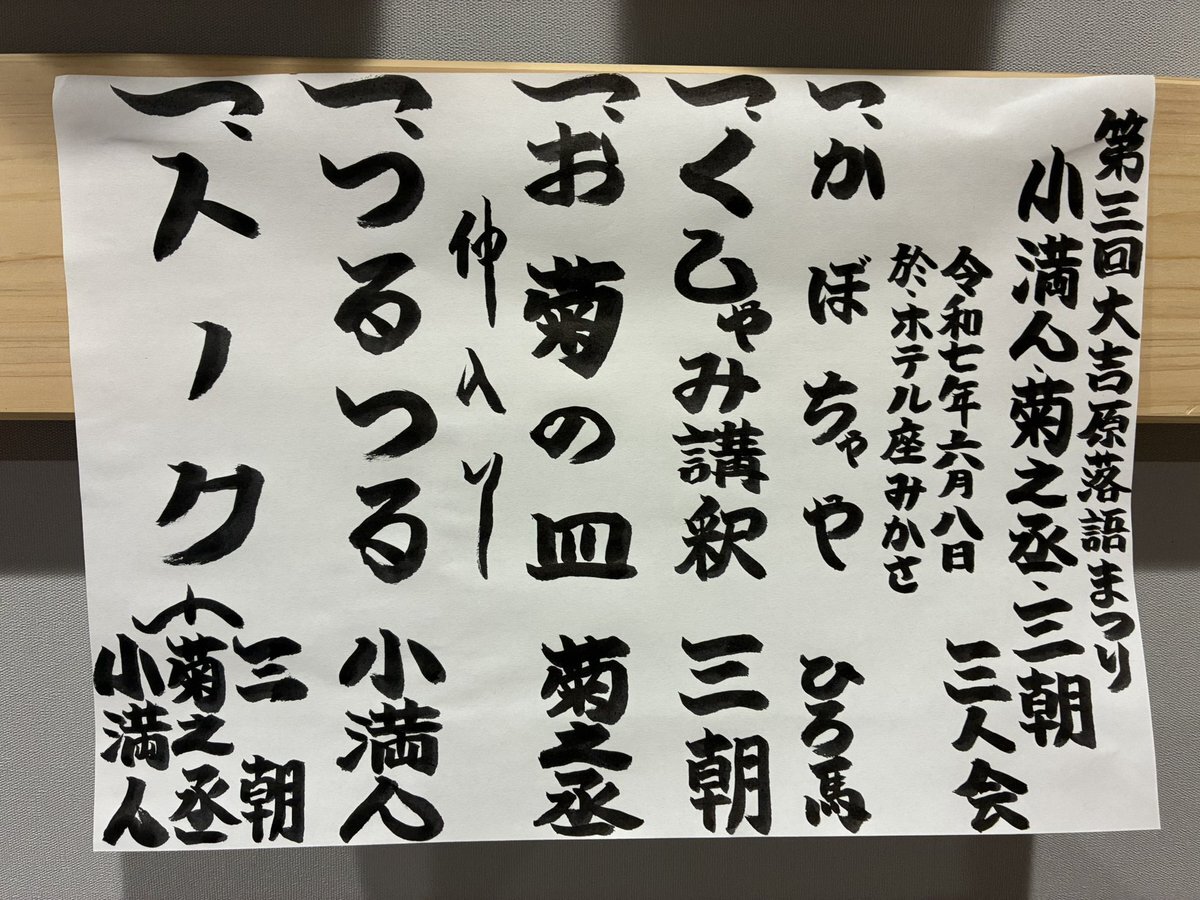 第三回大吉原落語まつり
小満ん、菊之丞、三朝
三人会
令和七年六月八日
於、ホテル座みかさ
一、かぼちゃや ひろ馬
一、くしゃみ講釈 三朝
一、お菊の皿 菊之丞
仲入り
一、つるつる 小満ん
一、トーク
三朝
菊之丞
小満ん